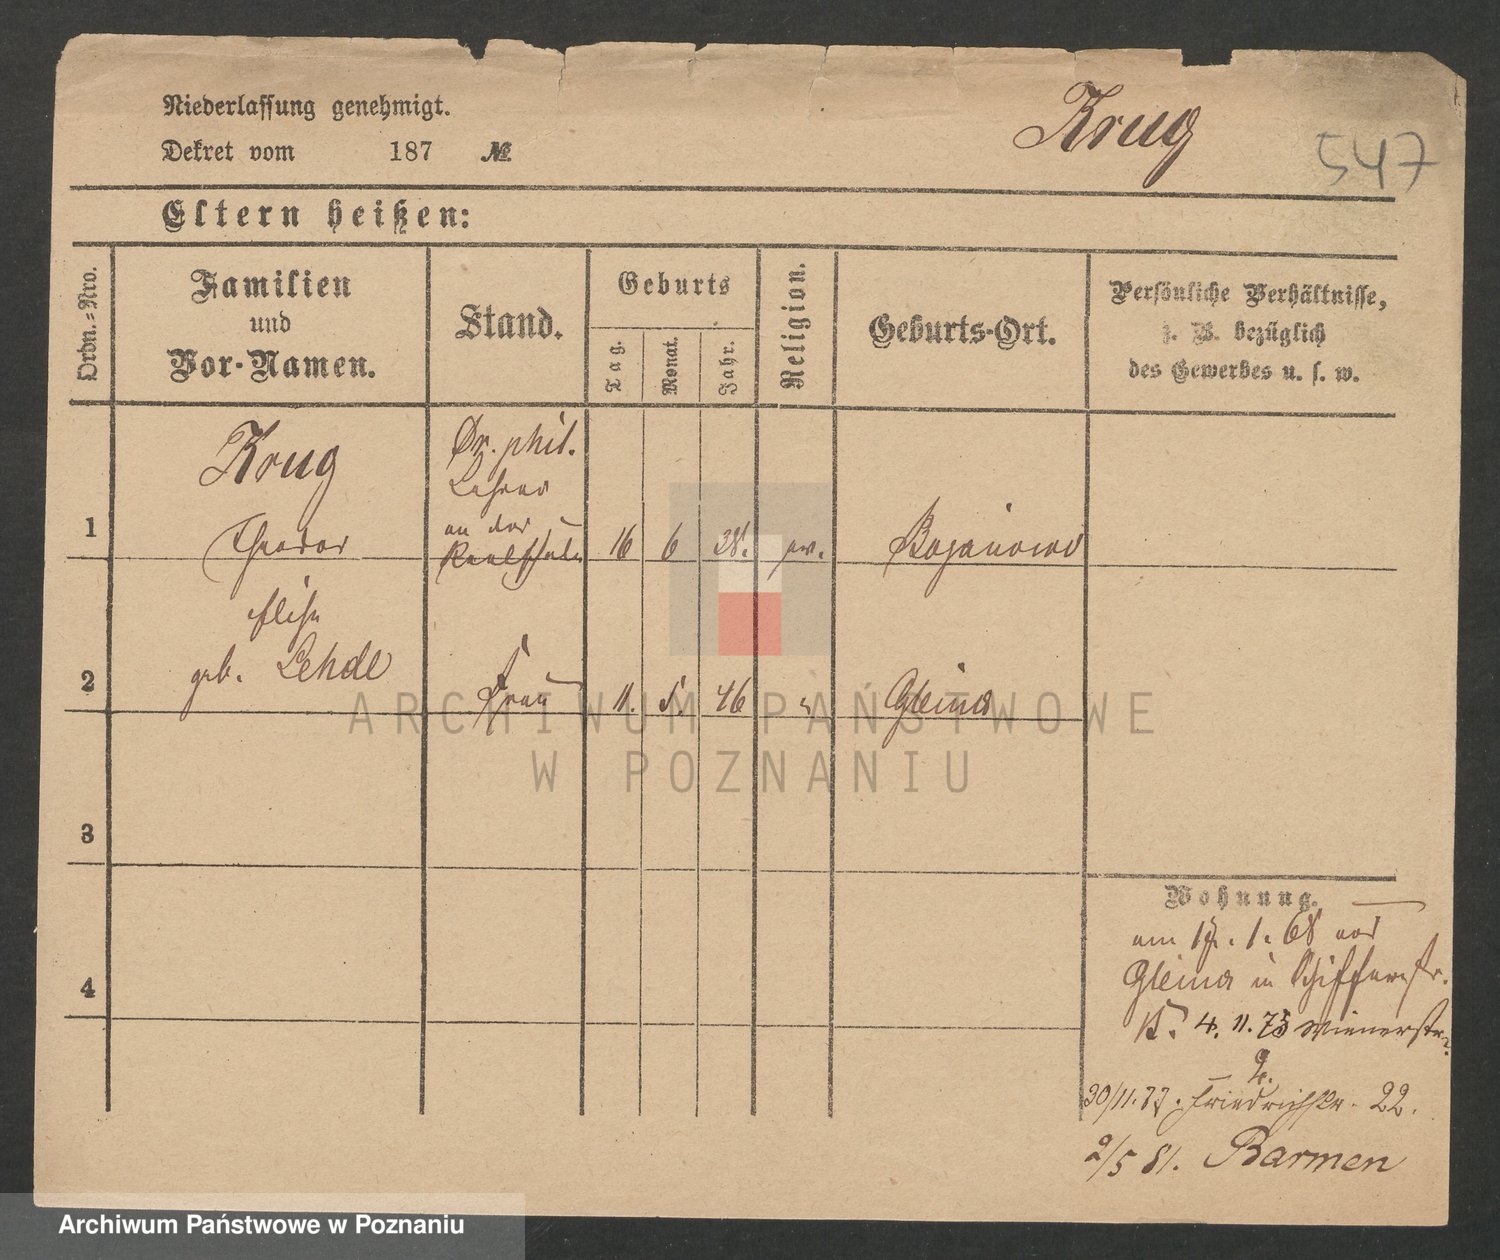 Niederlassung genehmigt.
Krug
547
Dekret vom 187 №
Eltern heißen:
Ordn.=Nro.
Familien
und
Vor-Namen.
Stand.
Geburts
Tag.
Monat.
Jahr.
Religion.
Geburts-Ort.
Persönliche Verhältnisse,
z. B. bezüglich
des Gewerbes u. s. w.
1
Krug
Theodor
Dr. phil.
Lehrer
an der
Realschule
16 6 38. ev. Bojanowo
2
Elise
geb. Lehde
Frau
11. 5. 46 " Gleina
3
4
Wohnung.
am 17. 1. 68 aus
Gleina in Schifferstr.
15. 4. 11. 75 Wienerstr.
2.
30/11. 77. Friedrichstr. 22.
2/5 81. Barmen
ARCHIWUM PAŃSTWOWE
W POZNANIU
Archiwum Państwowe w Poznaniu